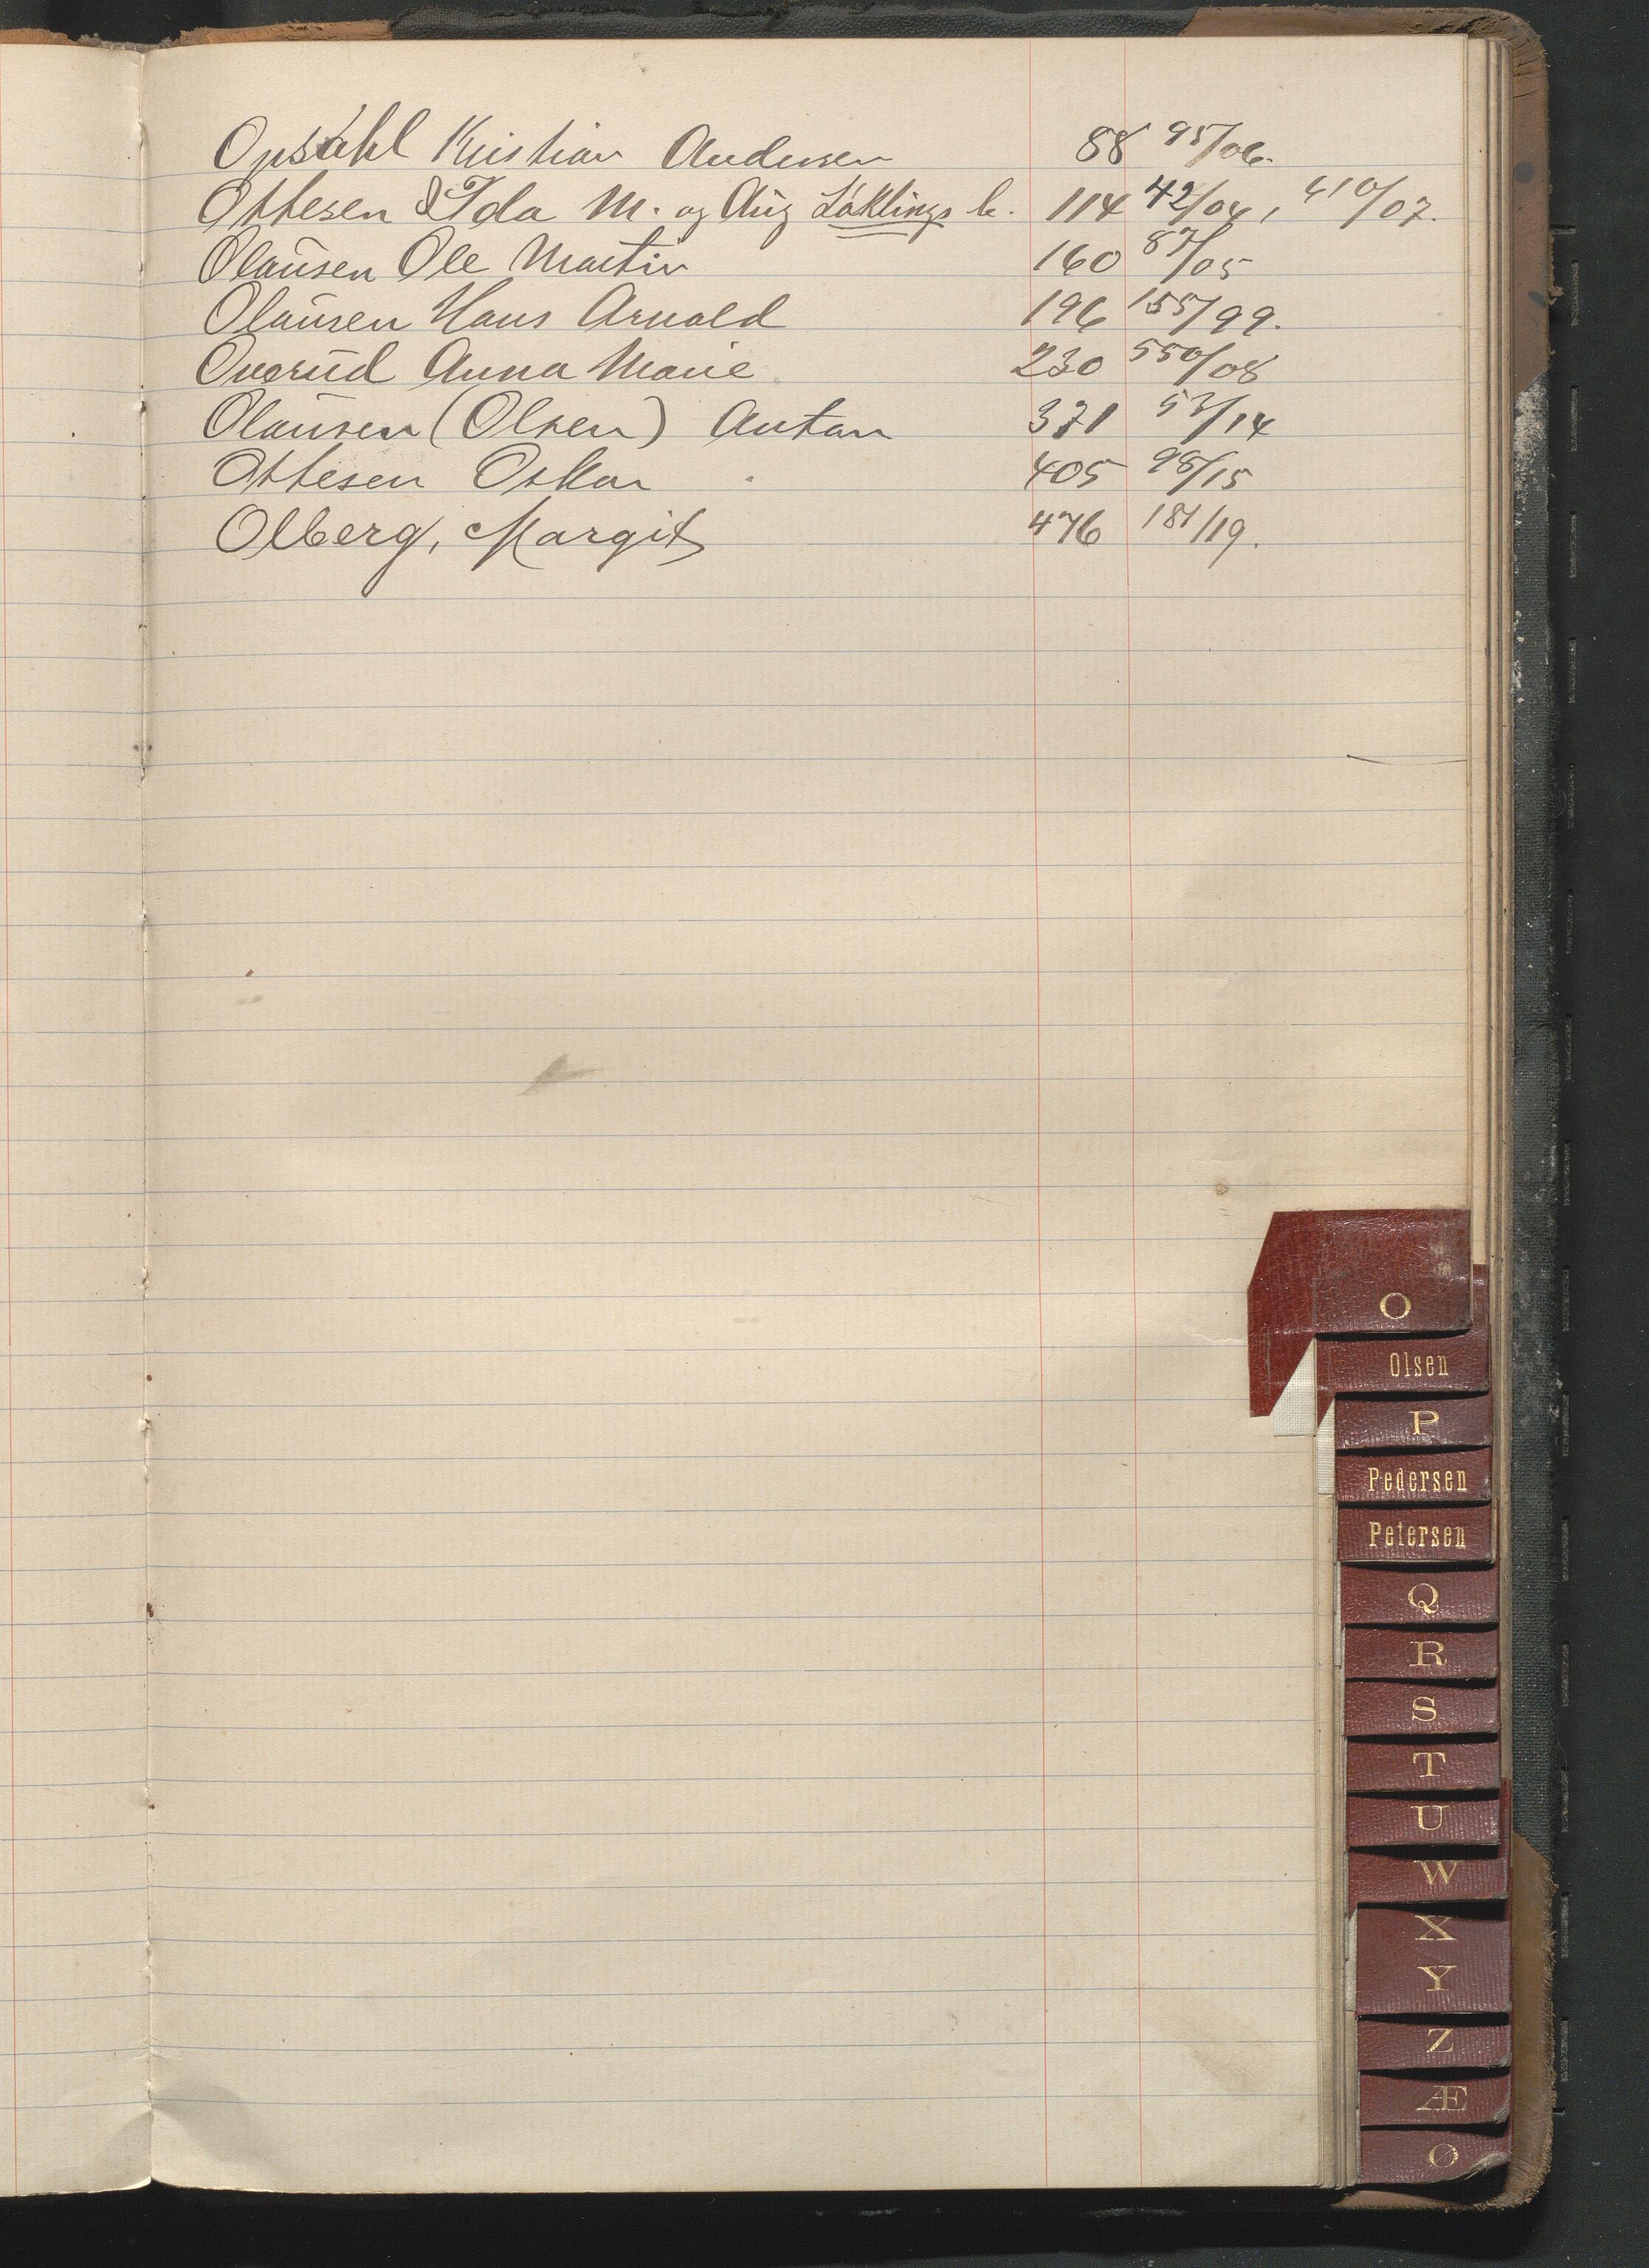 Opsahl Kristian Andersen 88 95/06.
Ottesen Ida M. og Aug Løklings b. 114 42/04, 410/07.
Olaŭsen Ole Martin 160 87/05
Olaŭsen Hans Arnold 196 155/99.
Overŭd Anna Marie 230 550/08
Olaŭsen (Olsen) Anton 371 53/14
Ottesen Oskar 405 98/15
Olberg, Margit 476 181/19.
O
Olsen
P
Pedersen
Petersen
Q
R
S
T
U
W
X
Y
Z
Æ
Ø